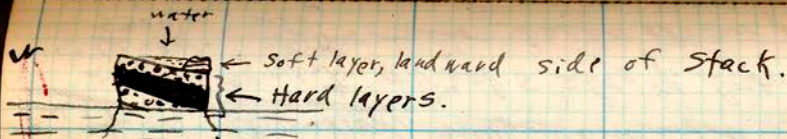 water
Soft layer, landward side of Stack.
Hard layers.
N